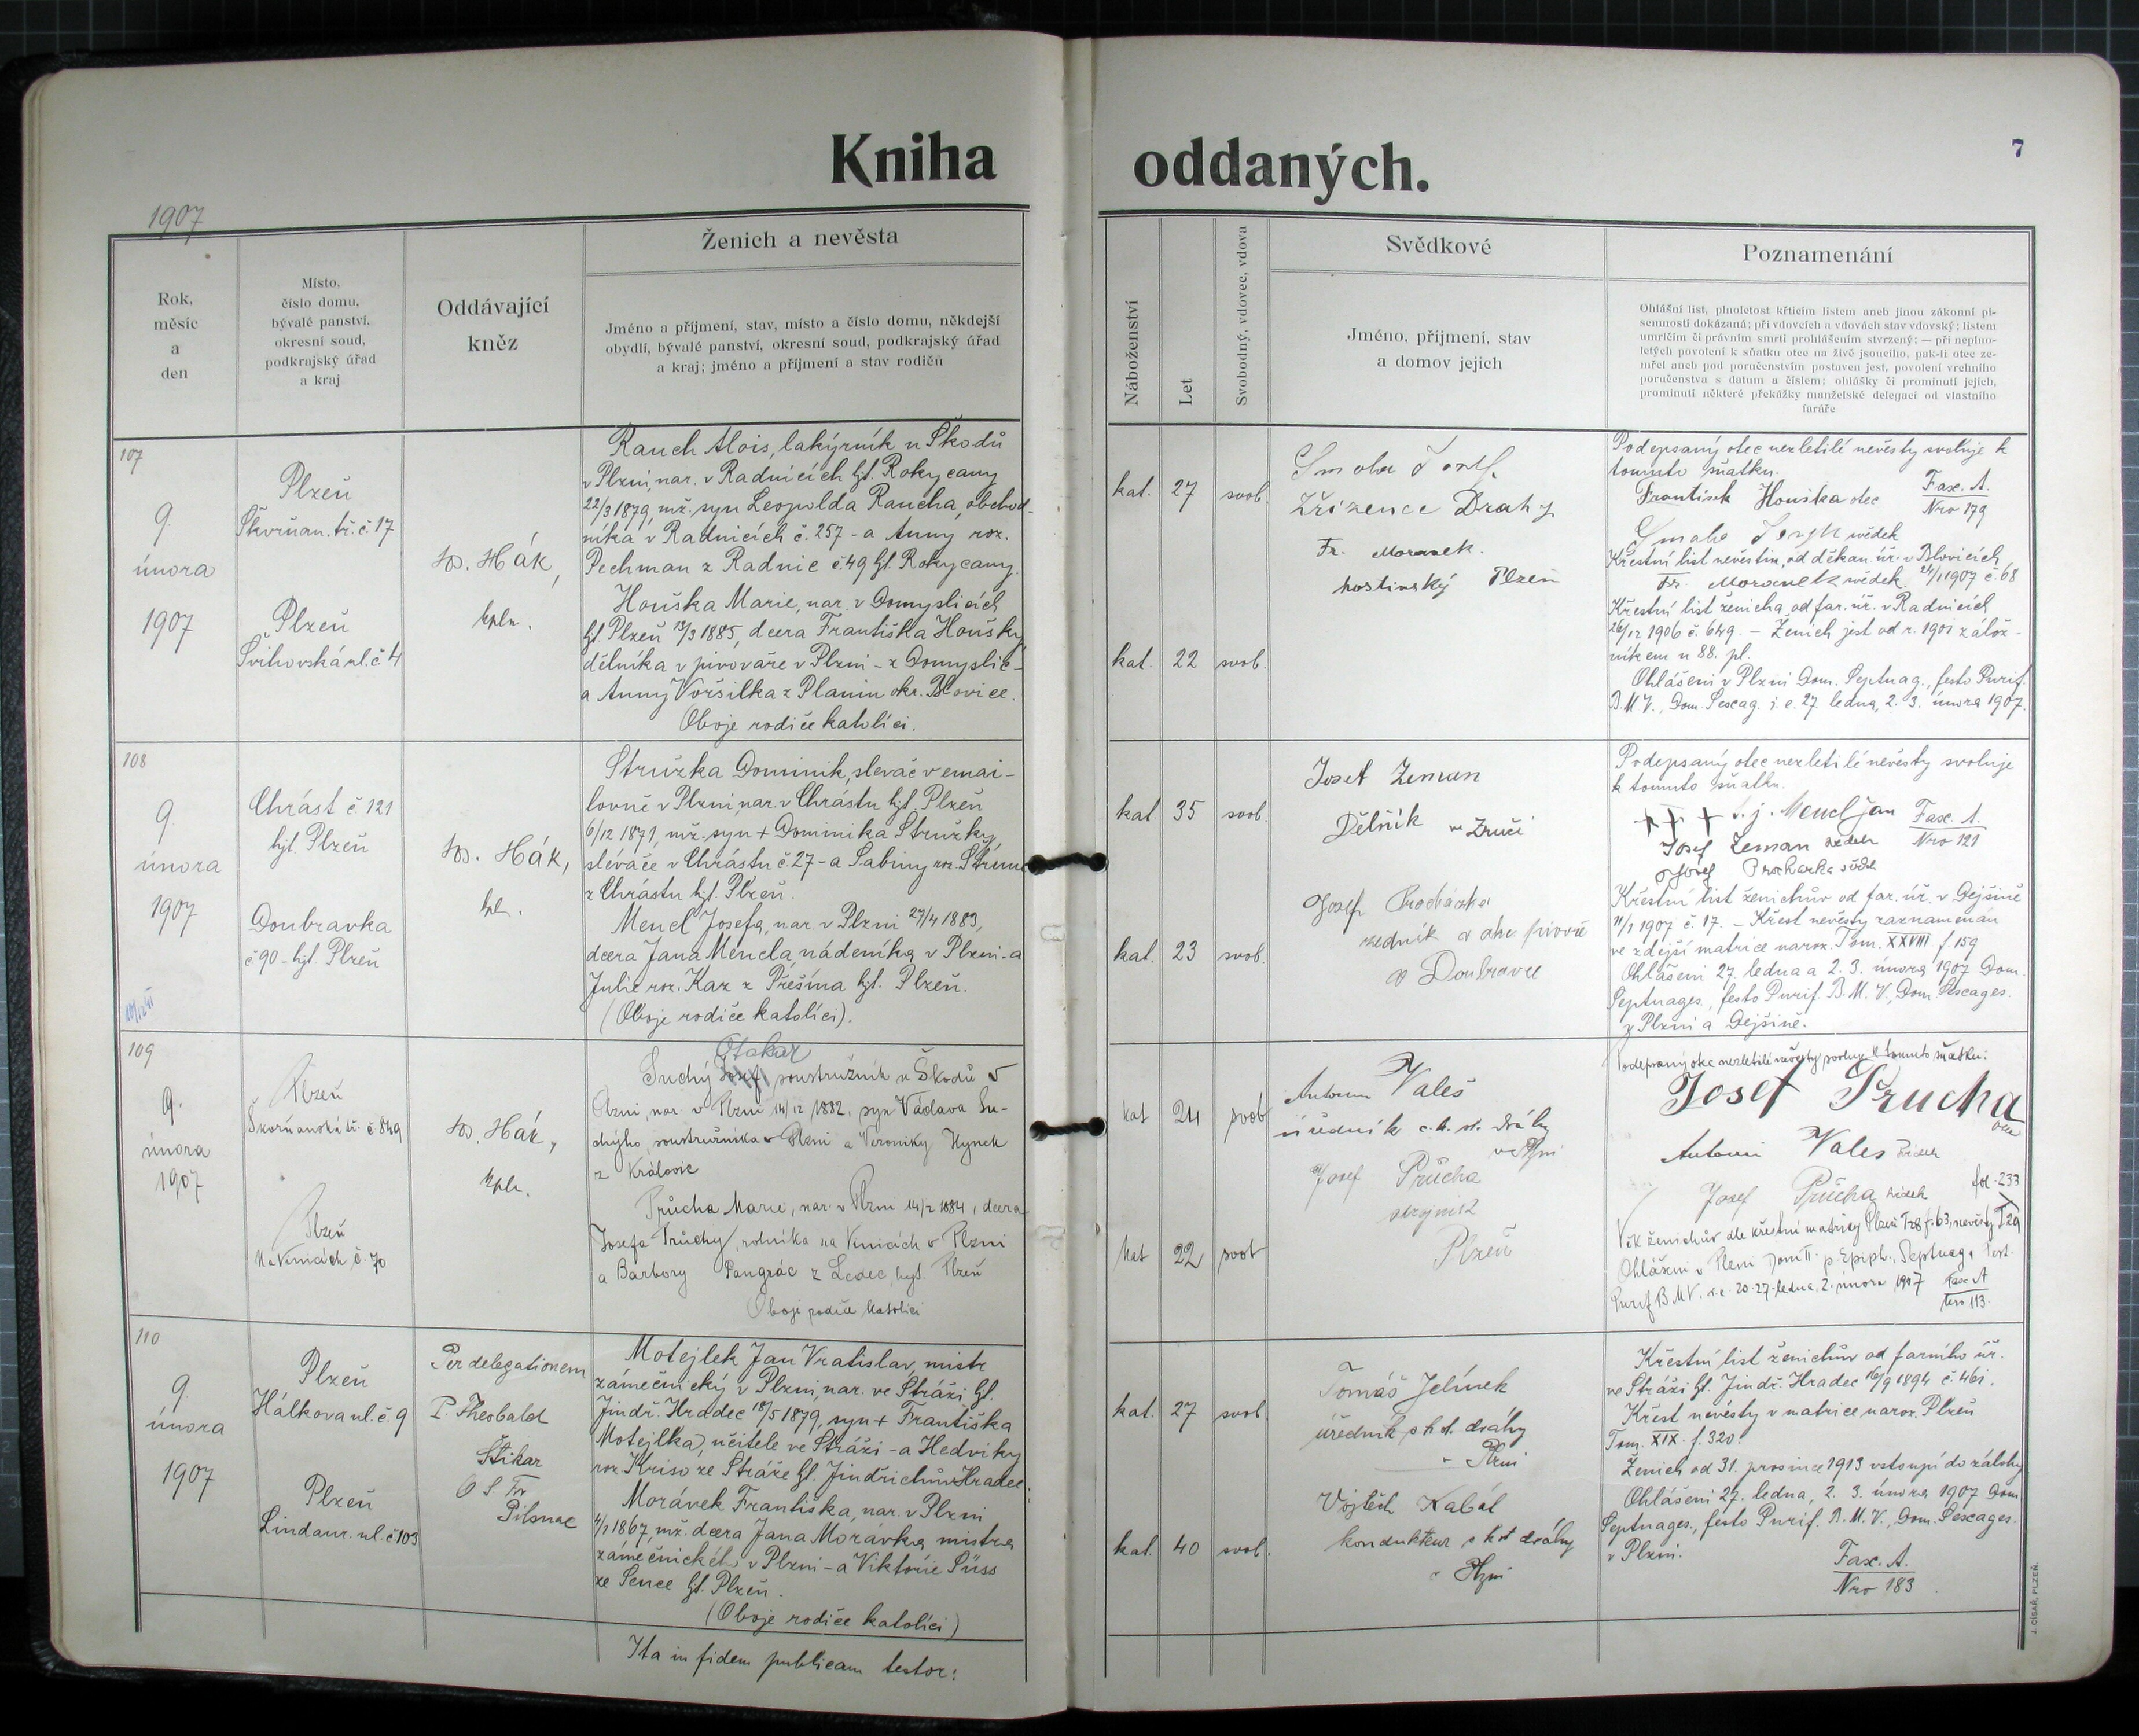 Kniha oddaných.
7
1907
Rok,
měsíc
a
den
Místo,
číslo domu,
bývalé panství,
okresní soud,
podkrajský úřad
a kraj
Oddávající
kněz
Ženich a nevěsta
Jméno a příjmení, stav, místo a číslo domu, někdejší
obydlí, bývalé panství, okresní soud, podkrajský úřad
a kraj; jméno a příjmení a stav rodičů
Náboženství
Let
Svobodný, vdovec, vdova
Svědkové
Jméno, příjmení, stav
a domov jejich
Poznamenání
Ohlášní list, plnoletost křticím listem aneb jinou zákonní pí-
semností dokázaná; při vdovcích a vdovách stav vdovský; listem
umrlčím či právním smrti prohlášením stvrzený; — při neplno-
letých povolení k sňatku otce na živě jsoucího, pak-li otec ze-
mřel aneb pod poručenstvím postaven jest, povolení vrchního
poručenstva s datum a číslem; ohlášky či prominutí jejich,
prominutí některé překážky manželské delegací od vlastního
faráře
107
9.
února
1907
Plzeň
Škvrňan. tř. č. 17
Plzeň
Švihovská ul. č 4
Hák,
kpln.
Rauch Alois, lakýrník u Škodů
v Plzni, nar. v Radnicích hjt. Rokycany
22/3 1879, mž. syn Leopolda Raucha, obchod-
níka v Radnicích č. 257 - a Anny roz.
Pechman z Radnic č. 49 hjt. Rokycany.
Houška Marie, nar. v Domyslicích
hjt. Plzeň 13/3 1885, dcera Františka Houšky
dělníka v pivováře v Plzni - z Domyslic -
a Anny Voršilka z Planin okr. Blovice.
Oboje rodiče katolíci.
kat. 27 svob.
kat. 22 svob.
Smola Josef
Zřízenec Drahy
Fr. Moravek.
hostinský Plzeň
Podepsaný otec nezletilé nevěsty svoluje k
tomuto sňatku.
František Houška otec
Fasc. A.
Nro 179
Josef svědek
Křestní list nevěstin, od děkan. úř. v Blovicích
Fr. Moravek svědek. 24/1 1907 č. 68
Křestní list ženicha, od far. úř. v Radnicích
26/12 1906 č. 649. - Ženich jest od r. 1901 zálož-
níkem u 88. pl.
Ohlášeni v Plzni Dom. Septuag., festo Purif.
B. M. V., Dom. Sexag. i. e. 27. ledna, 2. 3. února 1907.
108
9.
února
1907
Chrást č. 121
hjt. Plzeň
Doubravka
č 90 - hjt. Plzeň
Hák,
kpln.
Stružka Dominik, slevač v emai-
lovně v Plzni, nar. v Chrástu hjt. Plzeň
6/12 1871, mž. syn + Dominika Stružky,
slévače v Chrástu č. 27 - a Sabiny roz.
z Chrástu hjt. Plzeň.
Mencl Josefa, nar. v Plzni 27/4 1883,
dcera Jana Mencla, nádeníka v Plzni - a
Julie roz. Kax z Přešína hjt. Plzeň.
(Oboje rodiče katolíci).
kat. 35 svob.
kat. 23 svob.
Josef Zeman
Dělník v Zruči
Josef Procházka
zedník
v Doubravce
Podepsaný otec nezletilé nevěsty svoluje
k tomuto sňatku.
+ + + Mencl Jan
Fasc. A.
Nro 121
Josef Zeman svědek
Josef Procházka
Křestní list ženichův od far. úř. v Dejšině
11/1 1907 č. 17. - Křest nevěsty zaznamenán
ve zdejší matrice naroz. Tom. XXVIII f. 159
Ohlášeni 27. ledna a 2. 3. února 1907 Dom.
Septuages., festo Purif. B. M. V., Dom. Sexages.
v Plzni a Dejšině.
109
9.
února
1907
Plzeň
Škvrňanská tř. č 849
Plzeň
Na Vinicích č. 70
Hák,
kpln.
Otakar
Suchý Josef, soustružník u Škodů v
Plzni, nar. v Plzni 14/12 1882, syn Václava Su-
chýho, soustružníka v Plzni a Veroniky Hynek
z Kralovic
Průcha Marie, nar. v Plzni 14/2 1884, dcera
Josefa Průchy, rolníka na Vinicích v Plzni
a Barbory Pangrác z Ledec, hjt. Plzeň
Oboje rodiče katolíci
kat 24 svob
kat 22 svob
Antonín Valeš
úředník c. k. st. dráhy
v Plzni
Josef Průcha
strojník
Plzeň
Podepsaný otec nezletilé nevěsty svoluje k tomuto sňatku:
Josef Průcha
otec
Antonín Vales svědek
Josef Průcha svědek
fol. 233
Věk ženichův dle křestní matriky Plzeň T28 f. 63, nevěsty T. 29
Ohlášeni v Plzni Dom II. p. Epiph., Septuag., Fest.
Purif B. M. V. i. e. 20. 27. ledna, 2. února 1907
Fasc A
Nro 113.
110
9.
února
1907
Plzeň
Hálkova ul. č. 9
Plzeň
Lindaur. ul. č 103
Per delegationem
P. Theobald
Štikar
O S Fr
Pilsnae
Motejlek Jan Vratislav, mistr
zámečnický v Plzni, nar. ve Stráži hjt.
Jindř. Hradec 18/5 1879, syn + Františka
Motejlka, učitele ve Stráži - a Hedviky
roz. Kriso ze Stráže hjt. Jindřichův Hradec.
Morávek Františka, nar. v Plzni
4/1 1867, mž. dcera Jana Morávka, mistra
zámečnickéh. v Plzni - a Viktorie Süss
ze Sence hjt. Plzeň.
(Oboje rodiče katolíci)
kat. 27 svob.
kat. 40 svob.
Tomáš Jelínek
úředník c k st. dráhy
v Plzni
Vojtěch Kabát
kondukteur c k st dráhy
v Plzni
Křestní list ženichův od farního úř.
ve Stráži hjt. Jindř. Hradec 16/9 1894 č. 461.
Křest nevěsty v matrice naroz. Plzeň
Tom. XIX. f. 320.
Ženich od 31. prosince 1913 vstoupí do zálohy
Ohlášeni 27. ledna, 2. 3. února 1907 Dom.
Septuages., festo Purif. B. M. V., Dom. Sexages.
v Plzni.
Fasc. A.
Nro 183.
Ita in fidem publicam testor:
J. CÍSAŘ, PLZEŇ.